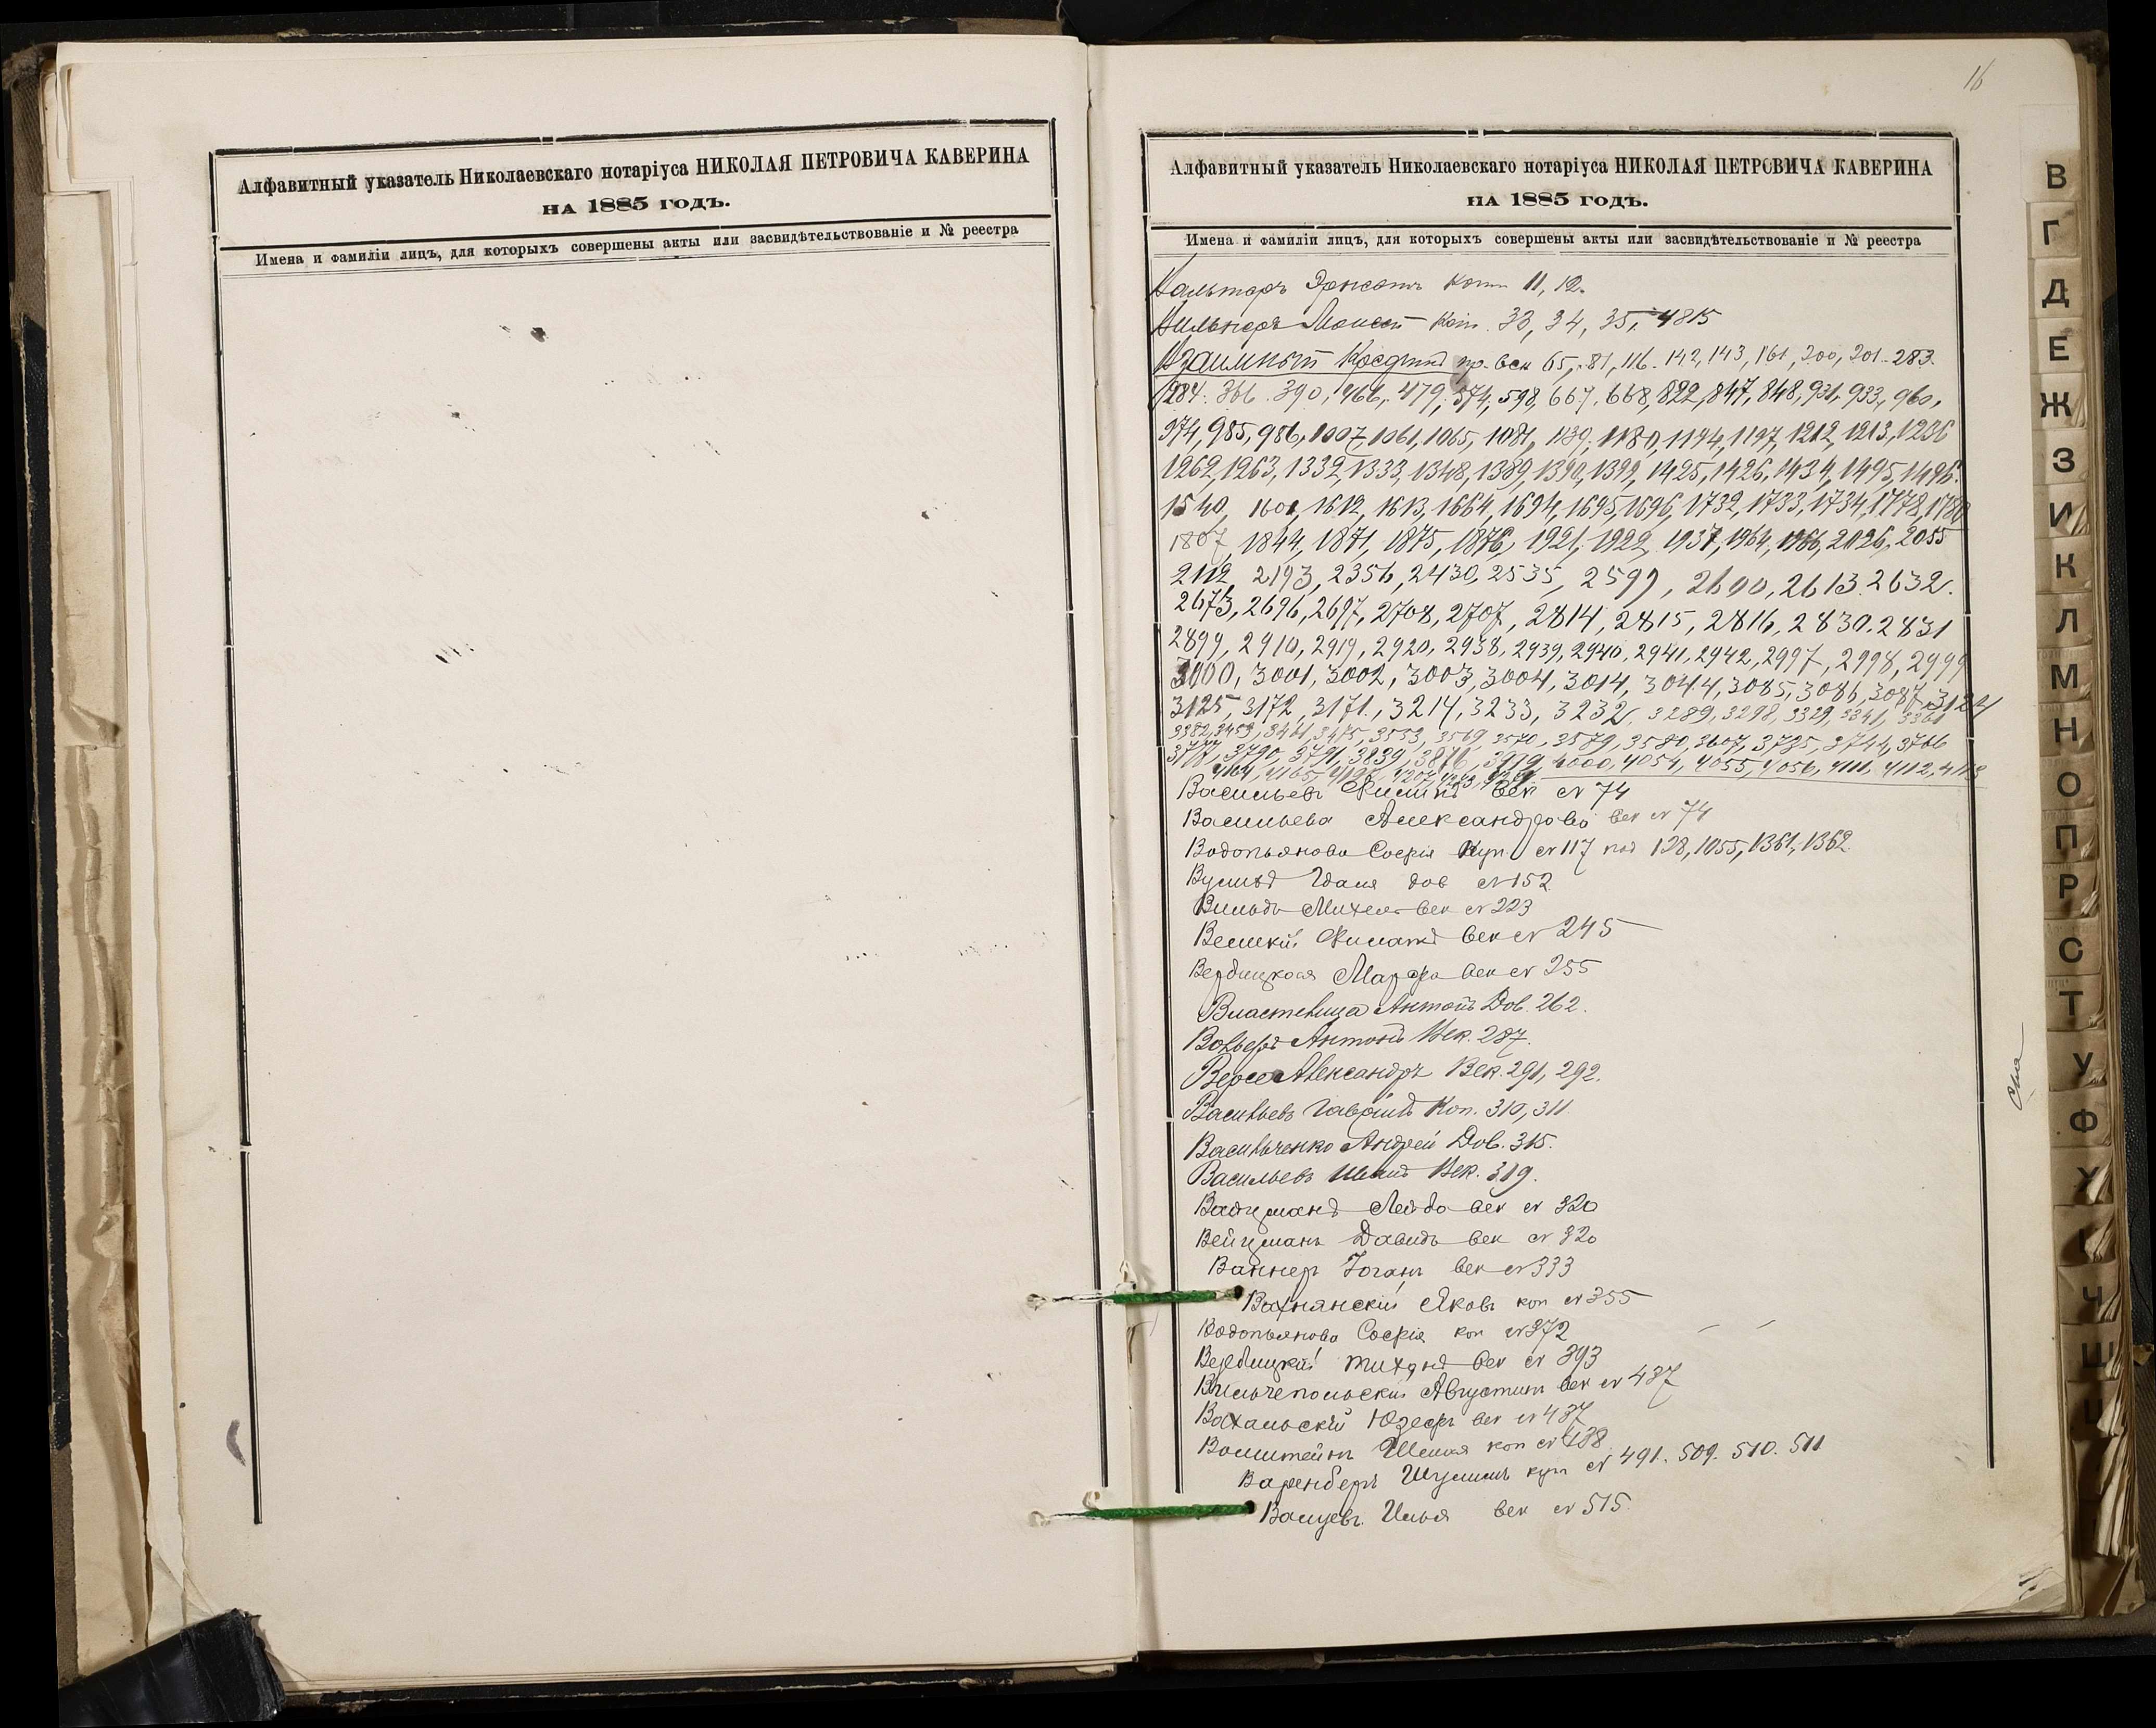 Алфавитный указатель Николаевскаго нотаріуса НИКОЛАЯ ПЕТРОВИЧА КАВЕРИНА
НА 1885 ГОДЪ.
Имена и фамиліи лицъ, для которыхъ совершены акты или засвидѣтельствованіе и № реестра
16
Алфавитный указатель Николаевскаго нотаріуса НИКОЛАЯ ПЕТРОВИЧА КАВЕРИНА
НА 1885 ГОДЪ.
Имена и фамиліи лицъ, для которыхъ совершены акты или засвидѣтельствованіе и № реестра
Вальтеръ Эрнестъ коп 11, 12.
Вильнеръ Моисей коп. 33, 34, 35, 4815
Взаимный Кредитъ пр. век 65, 81, 116. 142, 143, 161, 200, 201. 283.
284. 366. 390, 466, 479, 574, 598, 667, 668, 822, 847, 848, 931, 933, 960,
974, 985, 986, 1007, 1061, 1065, 1081, 1139, 1180, 1194, 1197, 1212, 1213, 1236
1262, 1263, 1332, 1333, 1348, 1389, 1390, 1399, 1425, 1426, 1434, 1495, 1496.
1540, 1601, 1612, 1613, 1664, 1694, 1695, 1696, 1732, 1733, 1734, 1778, 1780
1807, 1844, 1871, 1875, 1876, 1921, 1922, 1937, 1964, 1966, 2026, 2055
2112, 2193, 2356, 2430, 2535, 2599, 2600, 2613. 2632.
2673, 2696, 2697, 2708, 2707, 2814, 2815, 2816, 2830. 2831
2899, 2910, 2919, 2920, 2938, 2939, 2940, 2941, 2942, 2997, 2998, 2999
3000, 3001, 3002, 3003, 3004, 3014, 3044, 3085, 3086, 3087, 3124
3125, 3172, 3171., 3214, 3233, 3232, 3289, 3298, 3329, 3341, 3361
3382, 3459, 3461, 3475, 3553, 3569, 3570, 3579, 3580, 3607, 3735, 3744, 3766
3777, 3790, 3791, 3839, 3876, 3919, 4000, 4054, 4055, 4056, 4111, 4112, 4113
4164, 4165,
Васильевъ Филипъ век № 74
Васильева Александрова век № 74
Водопьянова Софія Куп № 117 под 128, 1055, 1361, 1362.
Вульфъ дов № 152
Вильдъ Михель век № 223
Велик
ій Филатъ век № 245
Вербицкая Марфа век № 255
Властелица Антонъ Дов. 262.
Вольеръ Антонъ Век. 287.
Версе Александръ Век. 291, 292.
Васильевъ Гавріилъ Коп. 310, 311
Васильченко Андрей Дов. 315.
Васильевъ Иванъ Век. 319.
Вайцманъ Лейба век № 320
Вейцманъ Давидъ век № 320
Ваннер Іоганъ век № 333
Вахнянскій Яковъ коп № 355
Водопьянова Софія коп № 372
Вербицкій Тихонъ век № 393
Вильчепольскій Августинъ век № 437
Вахальскій Юзефъ век № 437
Волштейнъ Шлема коп № 438
Варенберъ Шулимъ куп № 491. 509. 510. 511
Валцевъ. Илья век № 515.
В
Г
Д
Е
Ж
З
И
К
Л
М
Н
О
П
Р
С
Т
У
Ф
Х
Ч
Ш